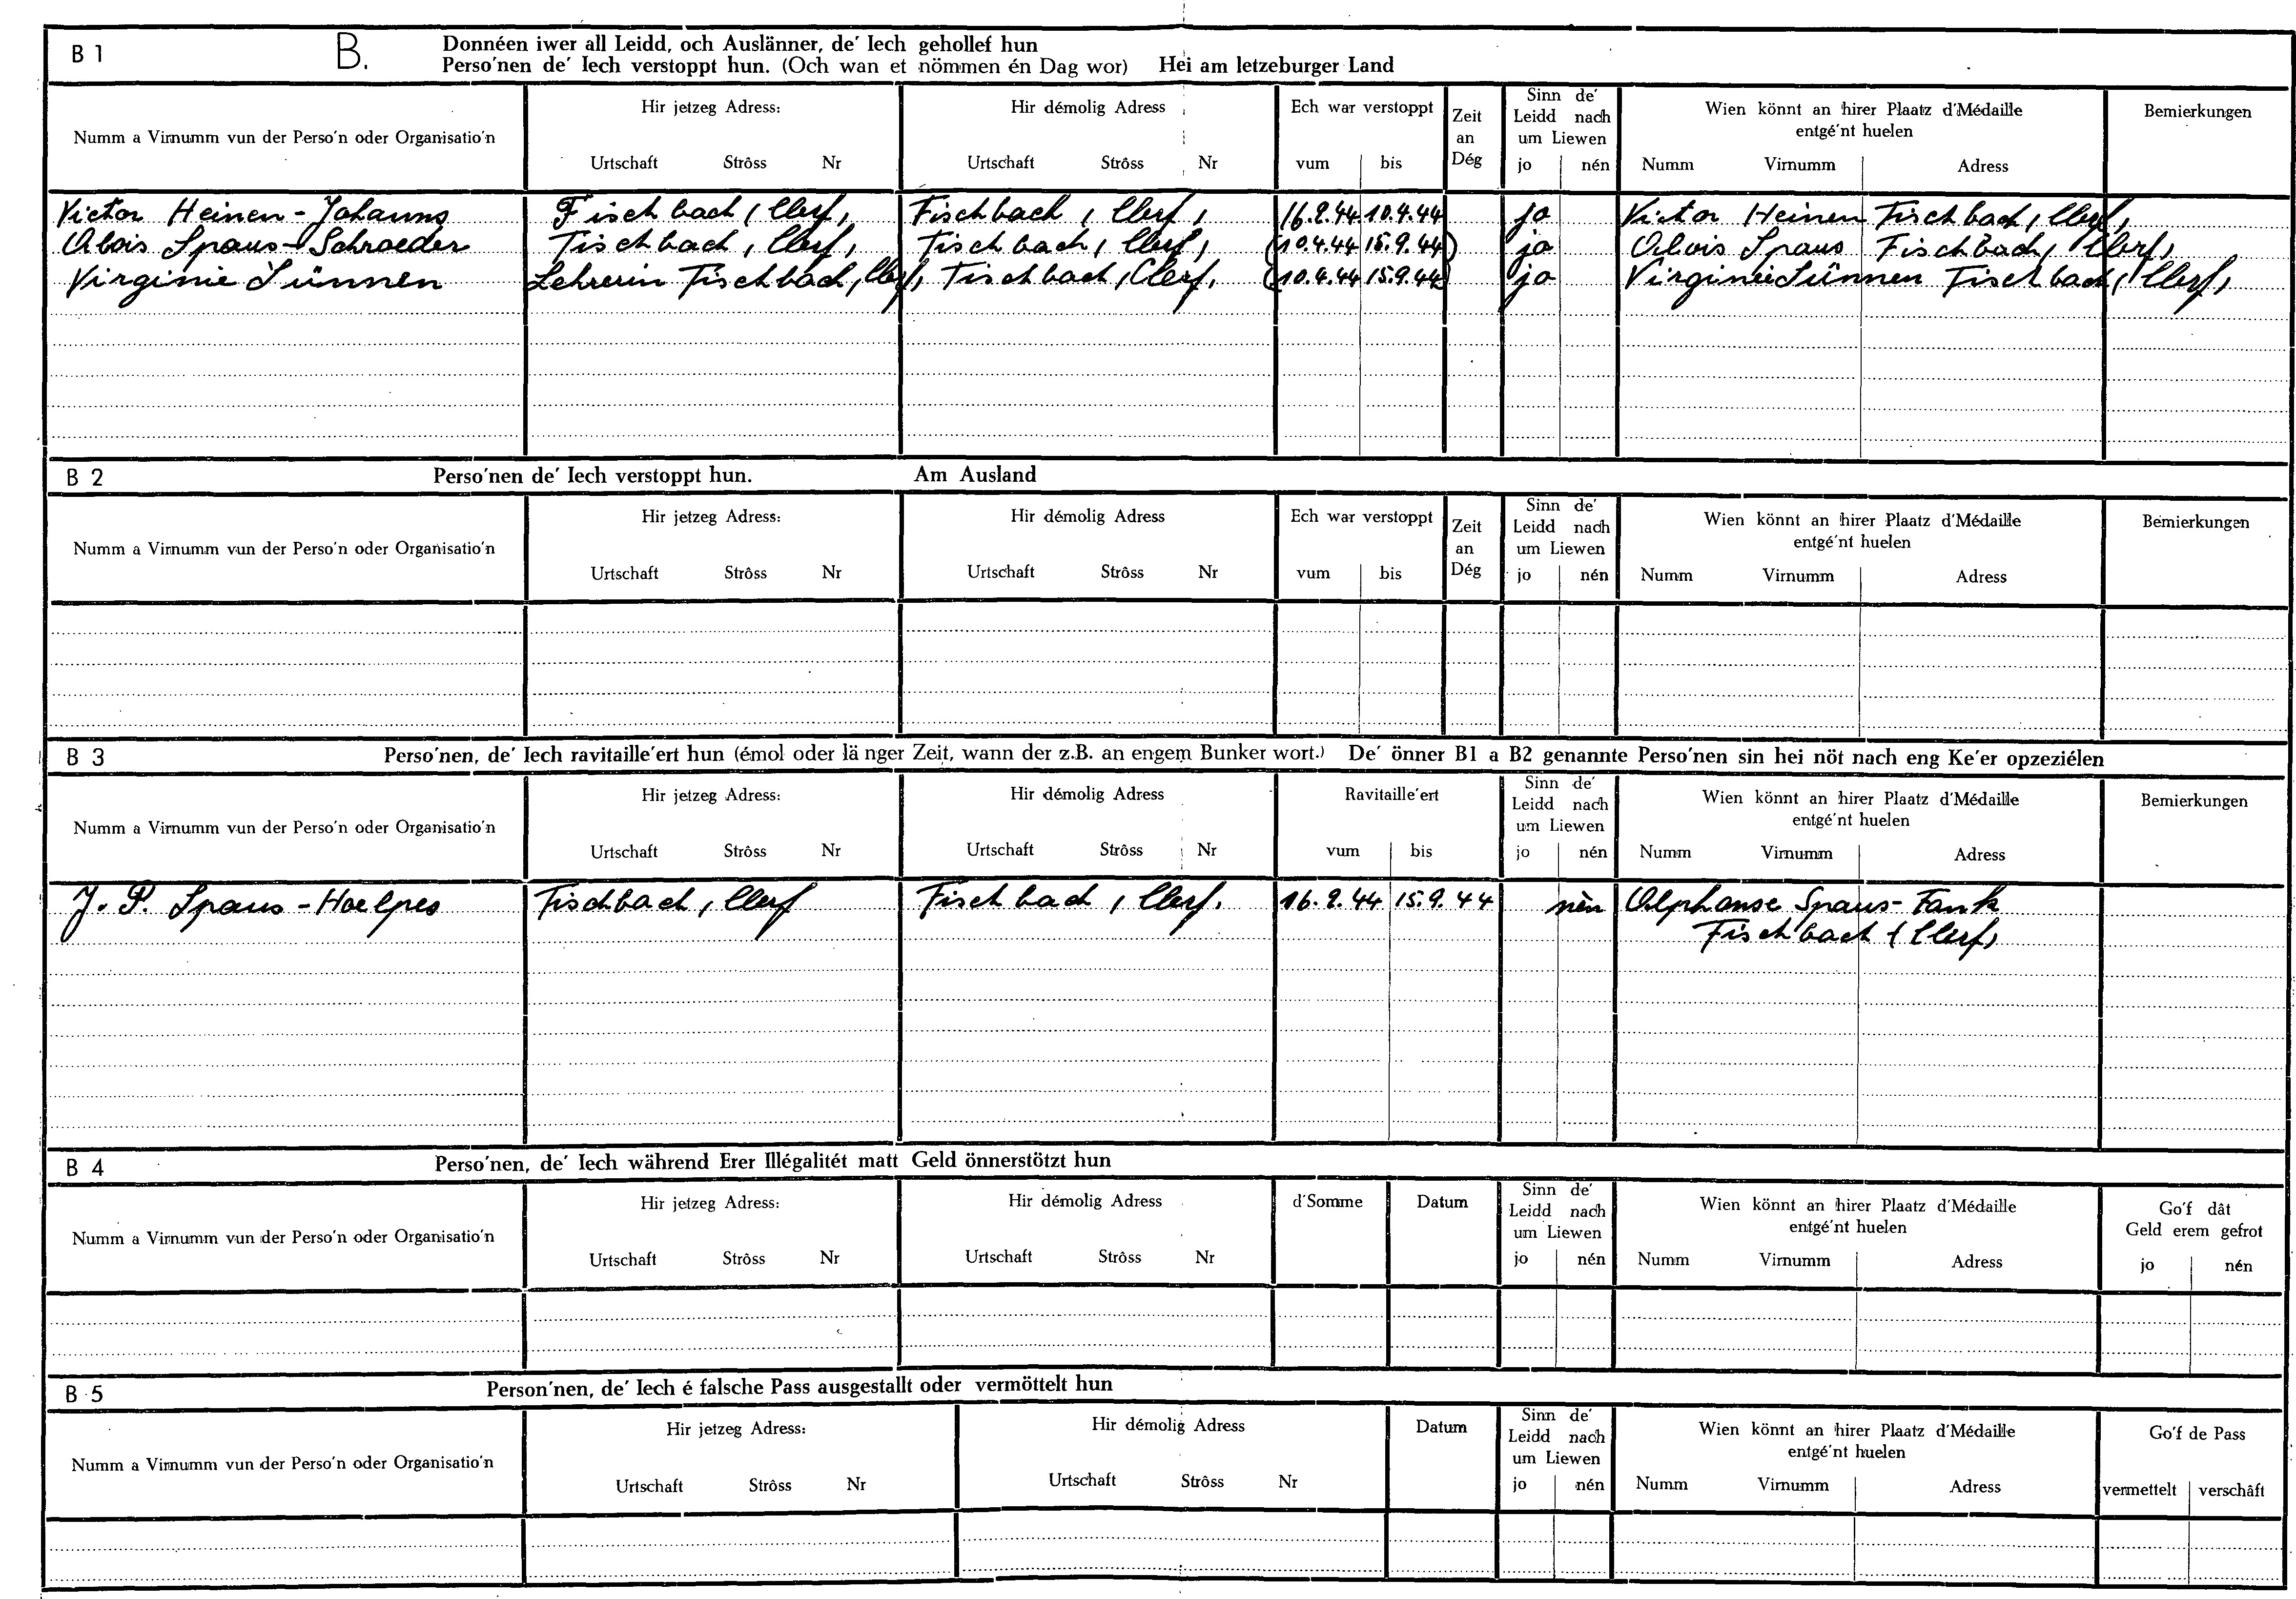 B 1 B. Donnéen iwer all Leidd, och Auslänner, de' Iech gehollef hun
Perso'nen de' Iech verstoppt hun. (Och wan et nömmen én Dag wor) Hei am letzeburger Land
Numm a Virnumm vun der Perso'n oder Organisatio'n
Hir jetzeg Adress:
Urtschaft Strôss Nr
Hir démolig Adress
Urtschaft Strôss Nr
Ech war verstoppt
vum bis
Zeit
an
Dég
Sinn de'
Leidd nach
um Liewen
jo nén
Wien könnt an hirer Plaatz d'Médaille
entgé'nt huelen
Numm Virnumm Adress
Bemierkungen
Victor Heinen - Johanns Fischbach, Clerf, Fischbach, Clerf, 16.2.44 10.4.44 jo Victor Heinen Fischbach, Clerf,
Alois Spaus - Schroeder Fischbach, Clerf, Fischbach, Clerf, (10.4.44 15.9.44) jo Alois Spaus Fischbach, Clerf,
Virginie Sünnen Lehrerin Fischbach, Clerf, Fischbach, Clerf, (10.4.44 15.9.44) jo Virginie Sünnen Fischbach, Clerf,
B 2 Perso'nen de' Iech verstoppt hun. Am Ausland
Numm a Virnumm vun der Perso'n oder Organisatio'n
Hir jetzeg Adress:
Urtschaft Strôss Nr
Hir démolig Adress
Urtschaft Strôss Nr
Ech war verstoppt
vum bis
Zeit
an
Dég
Sinn de'
Leidd nach
um Liewen
jo nén
Wien könnt an hirer Plaatz d'Médaille
entgé'nt huelen
Numm Virnumm Adress
Bemierkungen
B 3 Perso'nen, de' Iech ravitaille'ert hun (émol oder länger Zeit, wann der z.B. an engem Bunker wort.) De' önner B1 a B2 genannte Perso'nen sin hei nöt nach eng Ke'er opzeziélen
Numm a Virnumm vun der Perso'n oder Organisatio'n
Hir jetzeg Adress:
Urtschaft Strôss Nr
Hir démolig Adress
Urtschaft Strôss Nr
Ravitaille'ert
vum bis
Sinn de'
Leidd nach
um Liewen
jo nén
Wien könnt an hirer Plaatz d'Médaille
entgé'nt huelen
Numm Virnumm Adress
Bemierkungen
J. P. Spaus - Hoelpes Fischbach, Clerf Fischbach, Clerf. 16.2.44 15.9.44 nèn Alphonse Spaus - Fank
Fischbach (Clerf)
B 4 Perso'nen, de' Iech während Erer Illégalitét matt Geld önnerstötzt hun
Numm a Virnumm vun der Perso'n oder Organisatio'n
Hir jetzeg Adress:
Urtschaft Strôss Nr
Hir démolig Adress
Urtschaft Strôss Nr
d'Somme
Datum
Sinn de'
Leidd nach
um Liewen
jo nén
Wien könnt an hirer Plaatz d'Médaille
entgé'nt huelen
Numm Virnumm Adress
Go'f dât
Geld erem gefrot
jo nén
B 5 Person'nen, de' Iech é falsche Pass ausgestallt oder vermöttelt hun
Numm a Virnumm vun der Perso'n oder Organisatio'n
Hir jetzeg Adress:
Urtschaft Strôss Nr
Hir démolig Adress
Urtschaft Strôss Nr
Datum
Sinn de'
Leidd nach
um Liewen
jo nén
Wien könnt an hirer Plaatz d'Médaille
entgé'nt huelen
Numm Virnumm Adress
Go'f de Pass
vermettelt verschâft